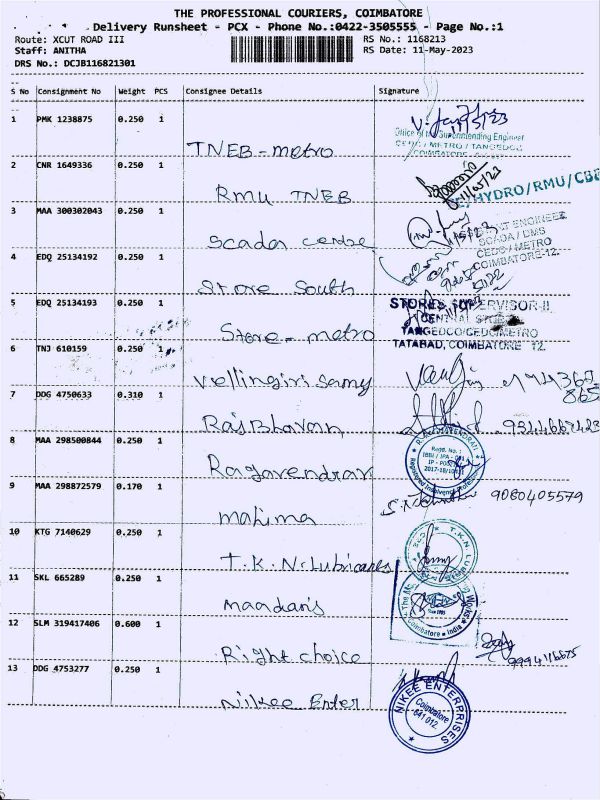 THE PROFESSIONAL COURIERS, COIMBATORE
Delivery Runsheet - PCX - Phone No.:0422-3505555 - Page No.:1
Route: XCUT ROAD III RS No.: 1168213
Staff: ANITHA RS Date: 11-May-2023
DRS No.: DCJB116821301
S No Consignment No Weight PCS Consignee Details Signature
1 PMK 1238875 0.250 1
11/5/23
Office of the Superintending Engineer
CEDC / METRO / TANGEDCO
COIMBATORE
TNEB - metro
2 CNR 1649336 0.250 1
11/05/23
/HYDRO/RMU/CBE
RMU TNEB
3 MAA 300302043 0.250 1
ENGINEER
SCADA / DMS
CEDC / METRO
COIMBATORE-12.
Scada centre
4 EDQ 25134192 0.250 1
Store South
5 EDQ 25134193 0.250 1
STORES SUPERVISOR-II
CENTRAL STORE
TANGEDCO/CEDC/METRO
TATABAD, COIMBATORE 12.
Store - metro
6 TNJ 610159 0.250 1
Vellingiri Samy
7 DDG 4750633 0.310 1
9344667423
Raj Bhavan
8 MAA 298500844 0.250 1
Regd. No.:
IBBI / IPA
2017-18/
Ragavendran
9 MAA 298872579 0.170 1
9080405579
mahima
10 KTG 7140629 0.250 1
T.K.N. LU
T.K.N. Lubricates
11 SKL 665289 0.250 1
Works
Coimbatore * India
maadans
12 SLM 319417406 0.600 1
Right choice
13 DDG 4753277 0.250 1
Nikee Enter
NIKEE ENTERPRISES
Coimbatore
641 012